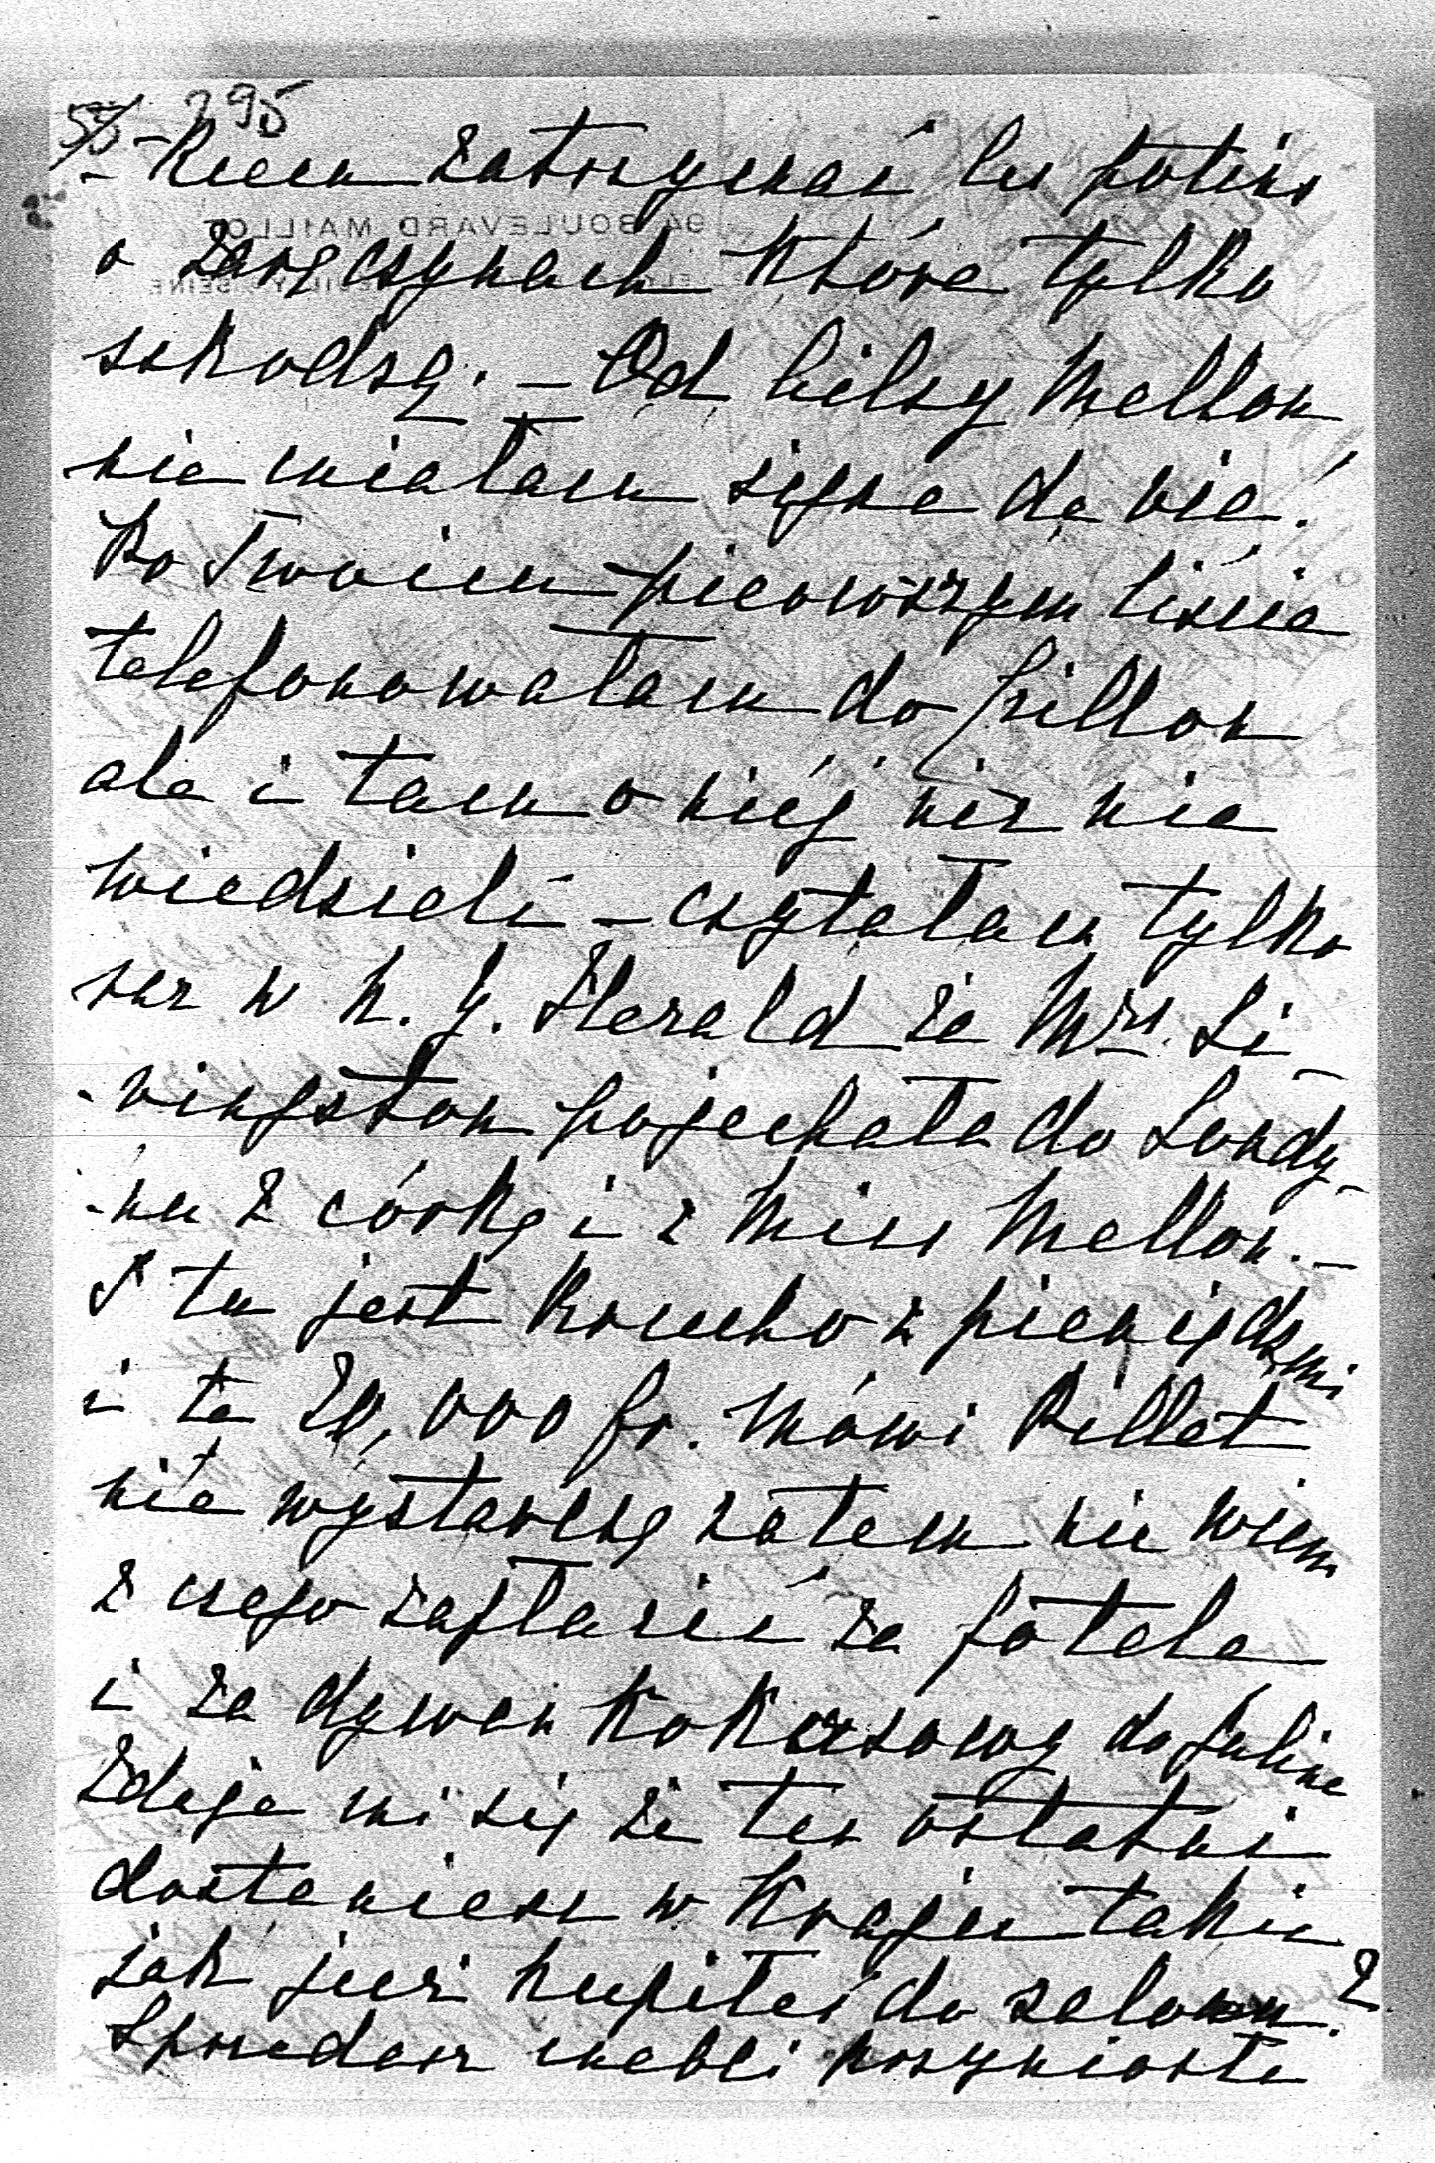 55 295
- Reum zatrzymać les potins
o zaręczynach które tylko
szkodzą. - Od Lilsy Mellon
nie miałam signe de vie!
Po Twoim pierwszym liście
telefonowałam do Frillon
ale i tam o niej nic nie
wiedzieli - czytałam tylko
raz w N. Y. Herald że Mrs. Li-
-vingston pojechała do Londy-
-nu z córką i z Miss Mellon. -
I tu jest krucho z pieniędzmi
i te 20,000 fr. mówi Pillet
nie wystarczą zatem nie wiem
z czego zapłacić za fotele
i za dywan kokosowy do Juline
Zdaje mi się że ten ostatni
dostaniesz w Kraju taki
jak już kupiłeś do salonu. Z
Sprzedaż mebli przyniosła
94 BOULEVARD MAILLOT